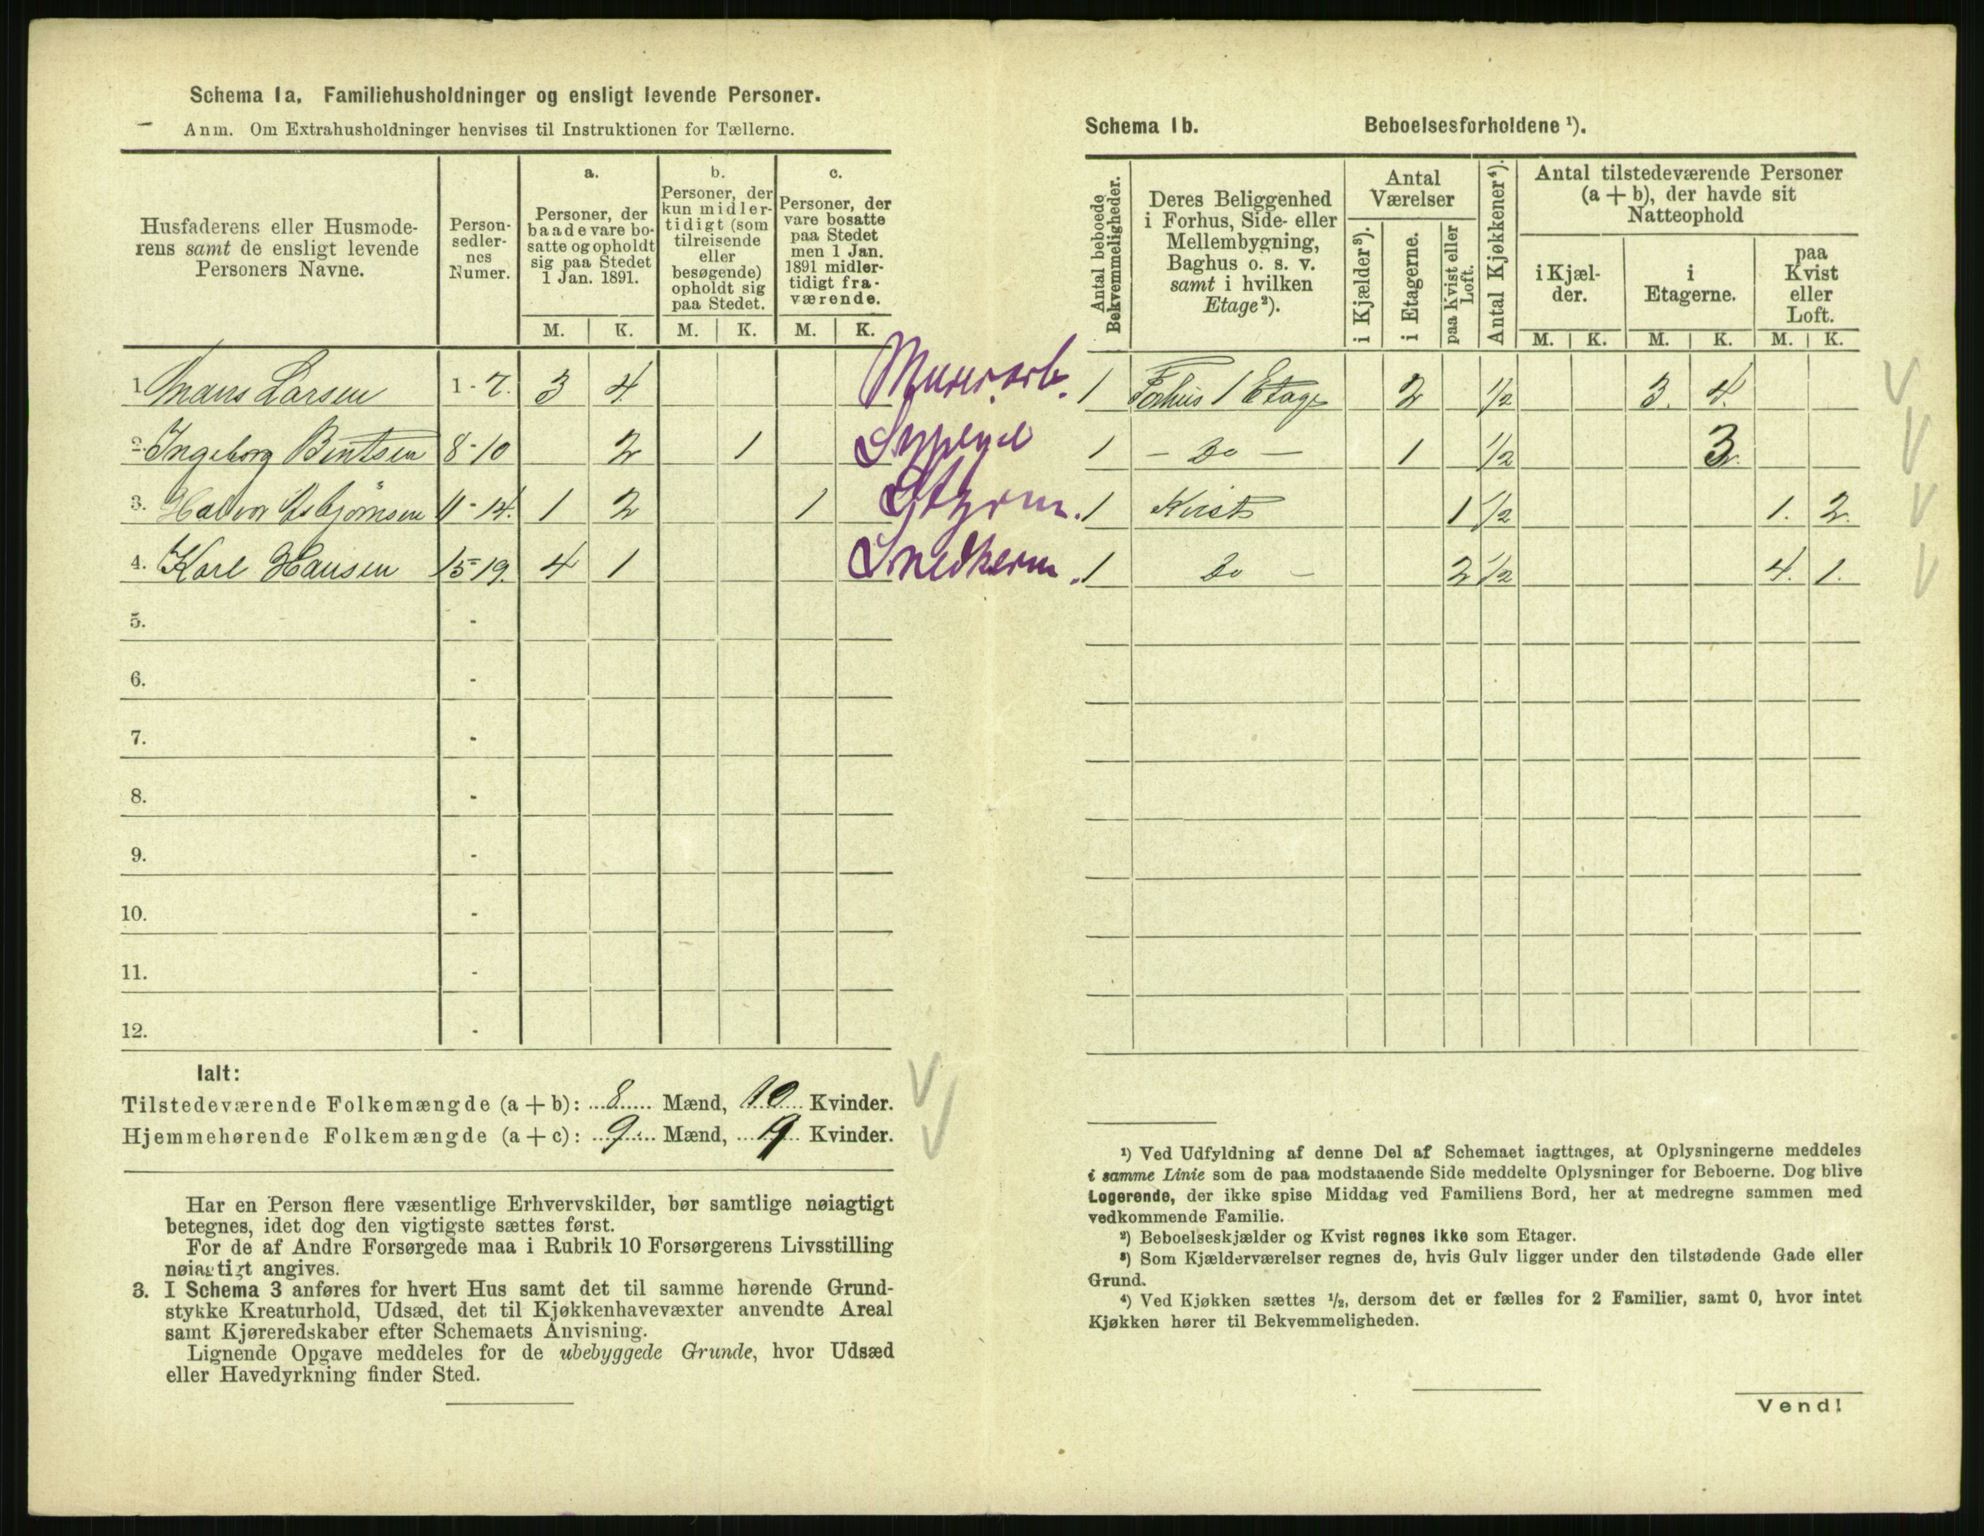 Schema 1a. Familiehusholdninger og ensligt levende Personer.
Anm. Om Extrahusholdninger henvises til Instruktionen for Tællerne.
Husfaderens eller Husmode-
rens samt de ensligt levende
Personers Navne.
Person-
sedler-
nes
Numer.
a.
Personer, der
baade vare bo-
satte og opholdt
sig paa Stedet
1 Jan. 1891.
b.
Personer, der
kun midler-
tidigt (som
tilreisende
eller
besøgende)
opholdt sig
paa Stedet.
c.
Personer, der
vare bosatte
paa Stedet
men 1 Jan.
1891 midler-
tidigt fra-
værende.
M. K. M. K. M. K.
1. Hans Larsen 1-7. 3 4. Murerarb.
2. Ingeborg Bentsen 8-10 2 1 Sypige
3. Halvor Asbjørnsen 11-14. 1 2 1 Styrm.
4. Karl Hansen 15-19. 4 1 Snedkerm.
5. -
6. -
7. -
8. -
9. -
10. -
11. -
12. -
Ialt:
Tilstedeværende Folkemængde (a + b): 8 Mænd, 10 Kvinder.
Hjemmehørende Folkemængde (a + c): 9 Mænd, 9 Kvinder.
Har en Person flere væsentlige Erhvervskilder, bør samtlige nøiagtigt
betegnes, idet dog den vigtigste sættes først.
For de af Andre Forsørgede maa i Rubrik 10 Forsørgerens Livsstilling
nøiagtigt angives.
3. I Schema 3 anføres for hvert Hus samt det til samme hørende Grund-
stykke Kreaturhold, Udsæd, det til Kjøkkenhavevæxter anvendte Areal
samt Kjøreredskaber efter Schemaets Anvisning.
Lignende Opgave meddeles for de ubebyggede Grunde, hvor Udsæd
eller Havedyrkning finder Sted.
Schema 1b. Beboelsesforholdene ¹).
Antal beboede
Bekvemmeligheder.
Deres Beliggenhed
i Forhus, Side- eller
Mellembygning,
Baghus o. s. v.
samt i hvilken
Etage²).
Antal
Værelser
i Kjælder³).
i Etagerne.
paa Kvist eller
Loft.
Antal Kjøkkener⁴).
Antal tilstedeværende Personer
(a + b), der havde sit
Natteophold
i Kjæl-
der.
i
Etagerne.
paa
Kvist
eller
Loft.
M. K. M. K. M. K.
1 Forhus 1 Etage 2 ½ 3. 4.
1 - Do - 1 ½ 3.
1 Kvist 1 ½ 1. 2.
1 Do - 2 ½ 4. 1.
¹) Ved Udfyldning af denne Del af Schemaet iagttages, at Oplysningerne meddeles
i samme Linie som de paa modstaaende Side meddelte Oplysninger for Beboerne. Dog blive
Logerende, der ikke spise Middag ved Familiens Bord, her at medregne sammen med
vedkommende Familie.
²) Beboelseskjælder og Kvist regnes ikke som Etager.
³) Som Kjælderværelser regnes de, hvis Gulv ligger under den tilstødende Gade eller
Grund.
⁴) Ved Kjøkken sættes ½, dersom det er fælles for 2 Familier, samt 0, hvor intet
Kjøkken hører til Bekvemmeligheden.
Vend!